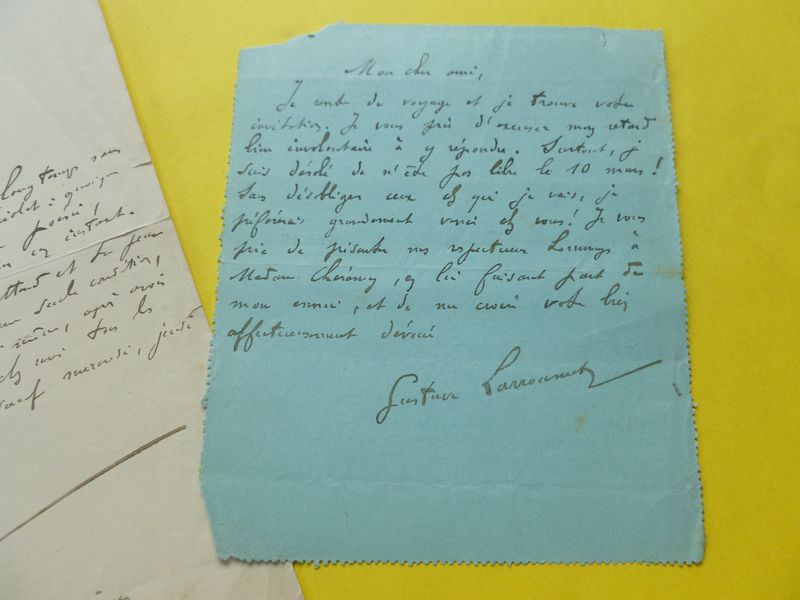 long temps sans
en instant.
et la
seule condition,
même, après avoir
chez moi tous les
sauf mercredi, jeudi
Mon cher ami,
Je rentre de voyage et je trouve votre
invitation. Je vous prie d'excuser mon retard
bien involontaire à y répondre. Surtout, je
suis désolé de n'être pas libre le 10 mars !
Sans désobliger ceux chez qui je vais, je
préférerais grandement venir chez vous ! Je vous
prie de présenter mes respectueux hommages à
Madame , en lui faisant part de
mon ennui, et de me croire votre bien
affectueusement dévoué
Gustave Larroumet